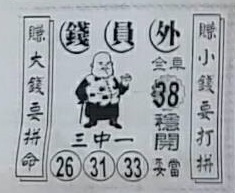 錢員外
賺小錢要打拼
賺大錢要拼命
全車
38
穩開
妥當
三中一
26 31 33